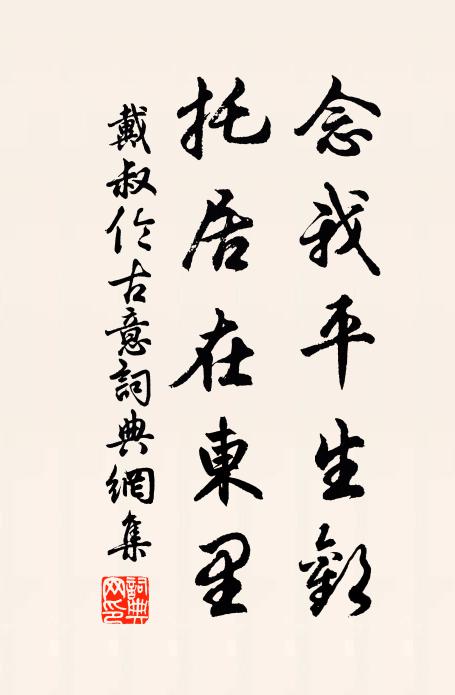 念我平生歡
托居在東里
戴叔伦古意詞典網集
詞典网印